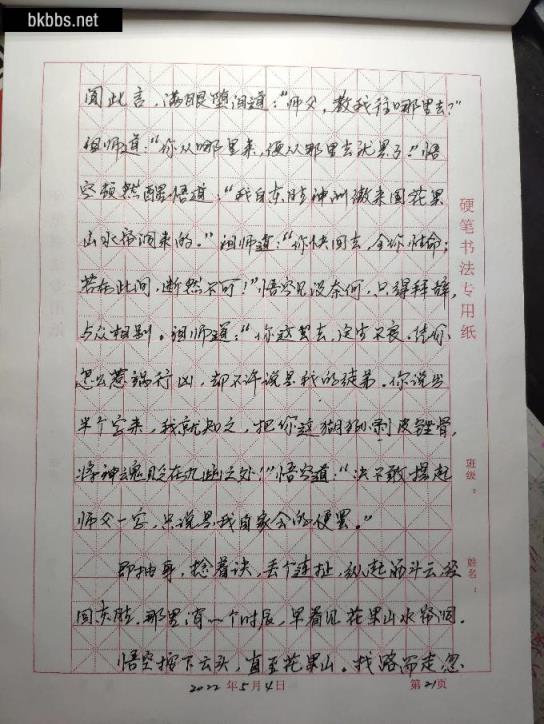 bkbbs.net
闻此言，满眼堕泪道：“师父，教我往哪里去？”
祖师道：“你从哪里来，便从那里去就罢了！”悟
空顿然醒悟道：“我自东胜神洲傲来国花果
山水帘洞来的。”祖师道：“你快回去，全你性命；
若在此间，断然不可！”悟空见没奈何，只得拜辞，
与众相别。祖师道：“你这里去，定生不良。凭你
怎么惹祸行凶，却不许说是我的徒弟。你说出
半个字来，我就知之，把你这猢狲剥皮锉骨，
将神魂贬在九幽之处！”悟空道：“决不敢提起
师父一字，只说是我自家会的便罢。”
即抽身，捻着诀，丢个连扯，纵起筋斗云，径
回东胜。那里消一个时辰，早看见花果山水帘洞。
悟空按下云头，直至花果山。找路而走，忽
硬笔书法专用纸
班级：
姓名：
2022年5月4日
第21页